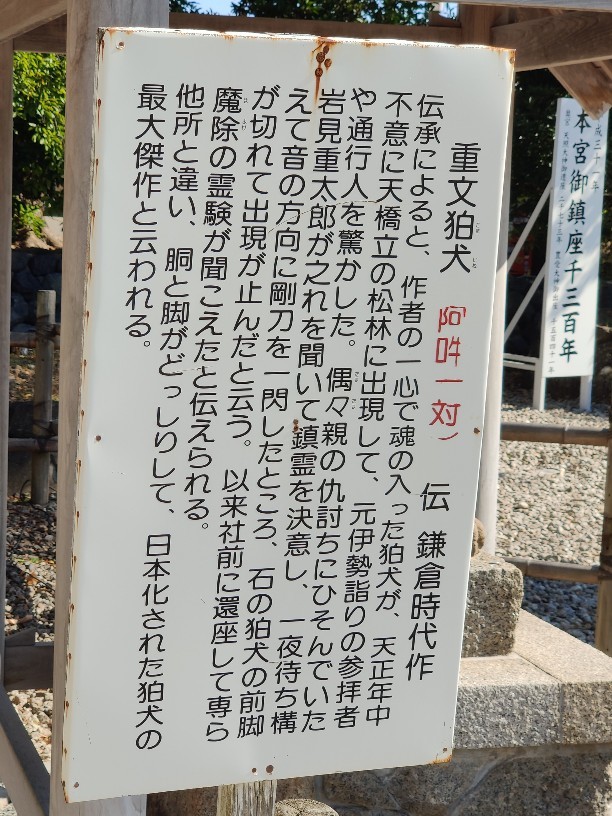 重文狛犬（阿吽一対） 伝 鎌倉時代作
こま いぬ
伝承によると、作者の一心で魂の入った狛犬が、天正年中
不意に天橋立の松林に出現して、元伊勢詣りの参拝者
や通行人を驚かした。偶々親の仇討ちにひそんでいた
岩見重太郎が之れを聞いて鎮霊を決意し、一夜待ち構
えて音の方向に剛刀を一閃したところ、石の狛犬の前脚
が切れて出現が止んだと云う。以来社前に還座して専ら
魔除の霊験が聞こえたと伝えられる。
ま よけ
他所と違い、胴と脚がどっしりして、日本化された狛犬の
最大傑作と云われる。
成三十一年
本宮御鎮座千三百年